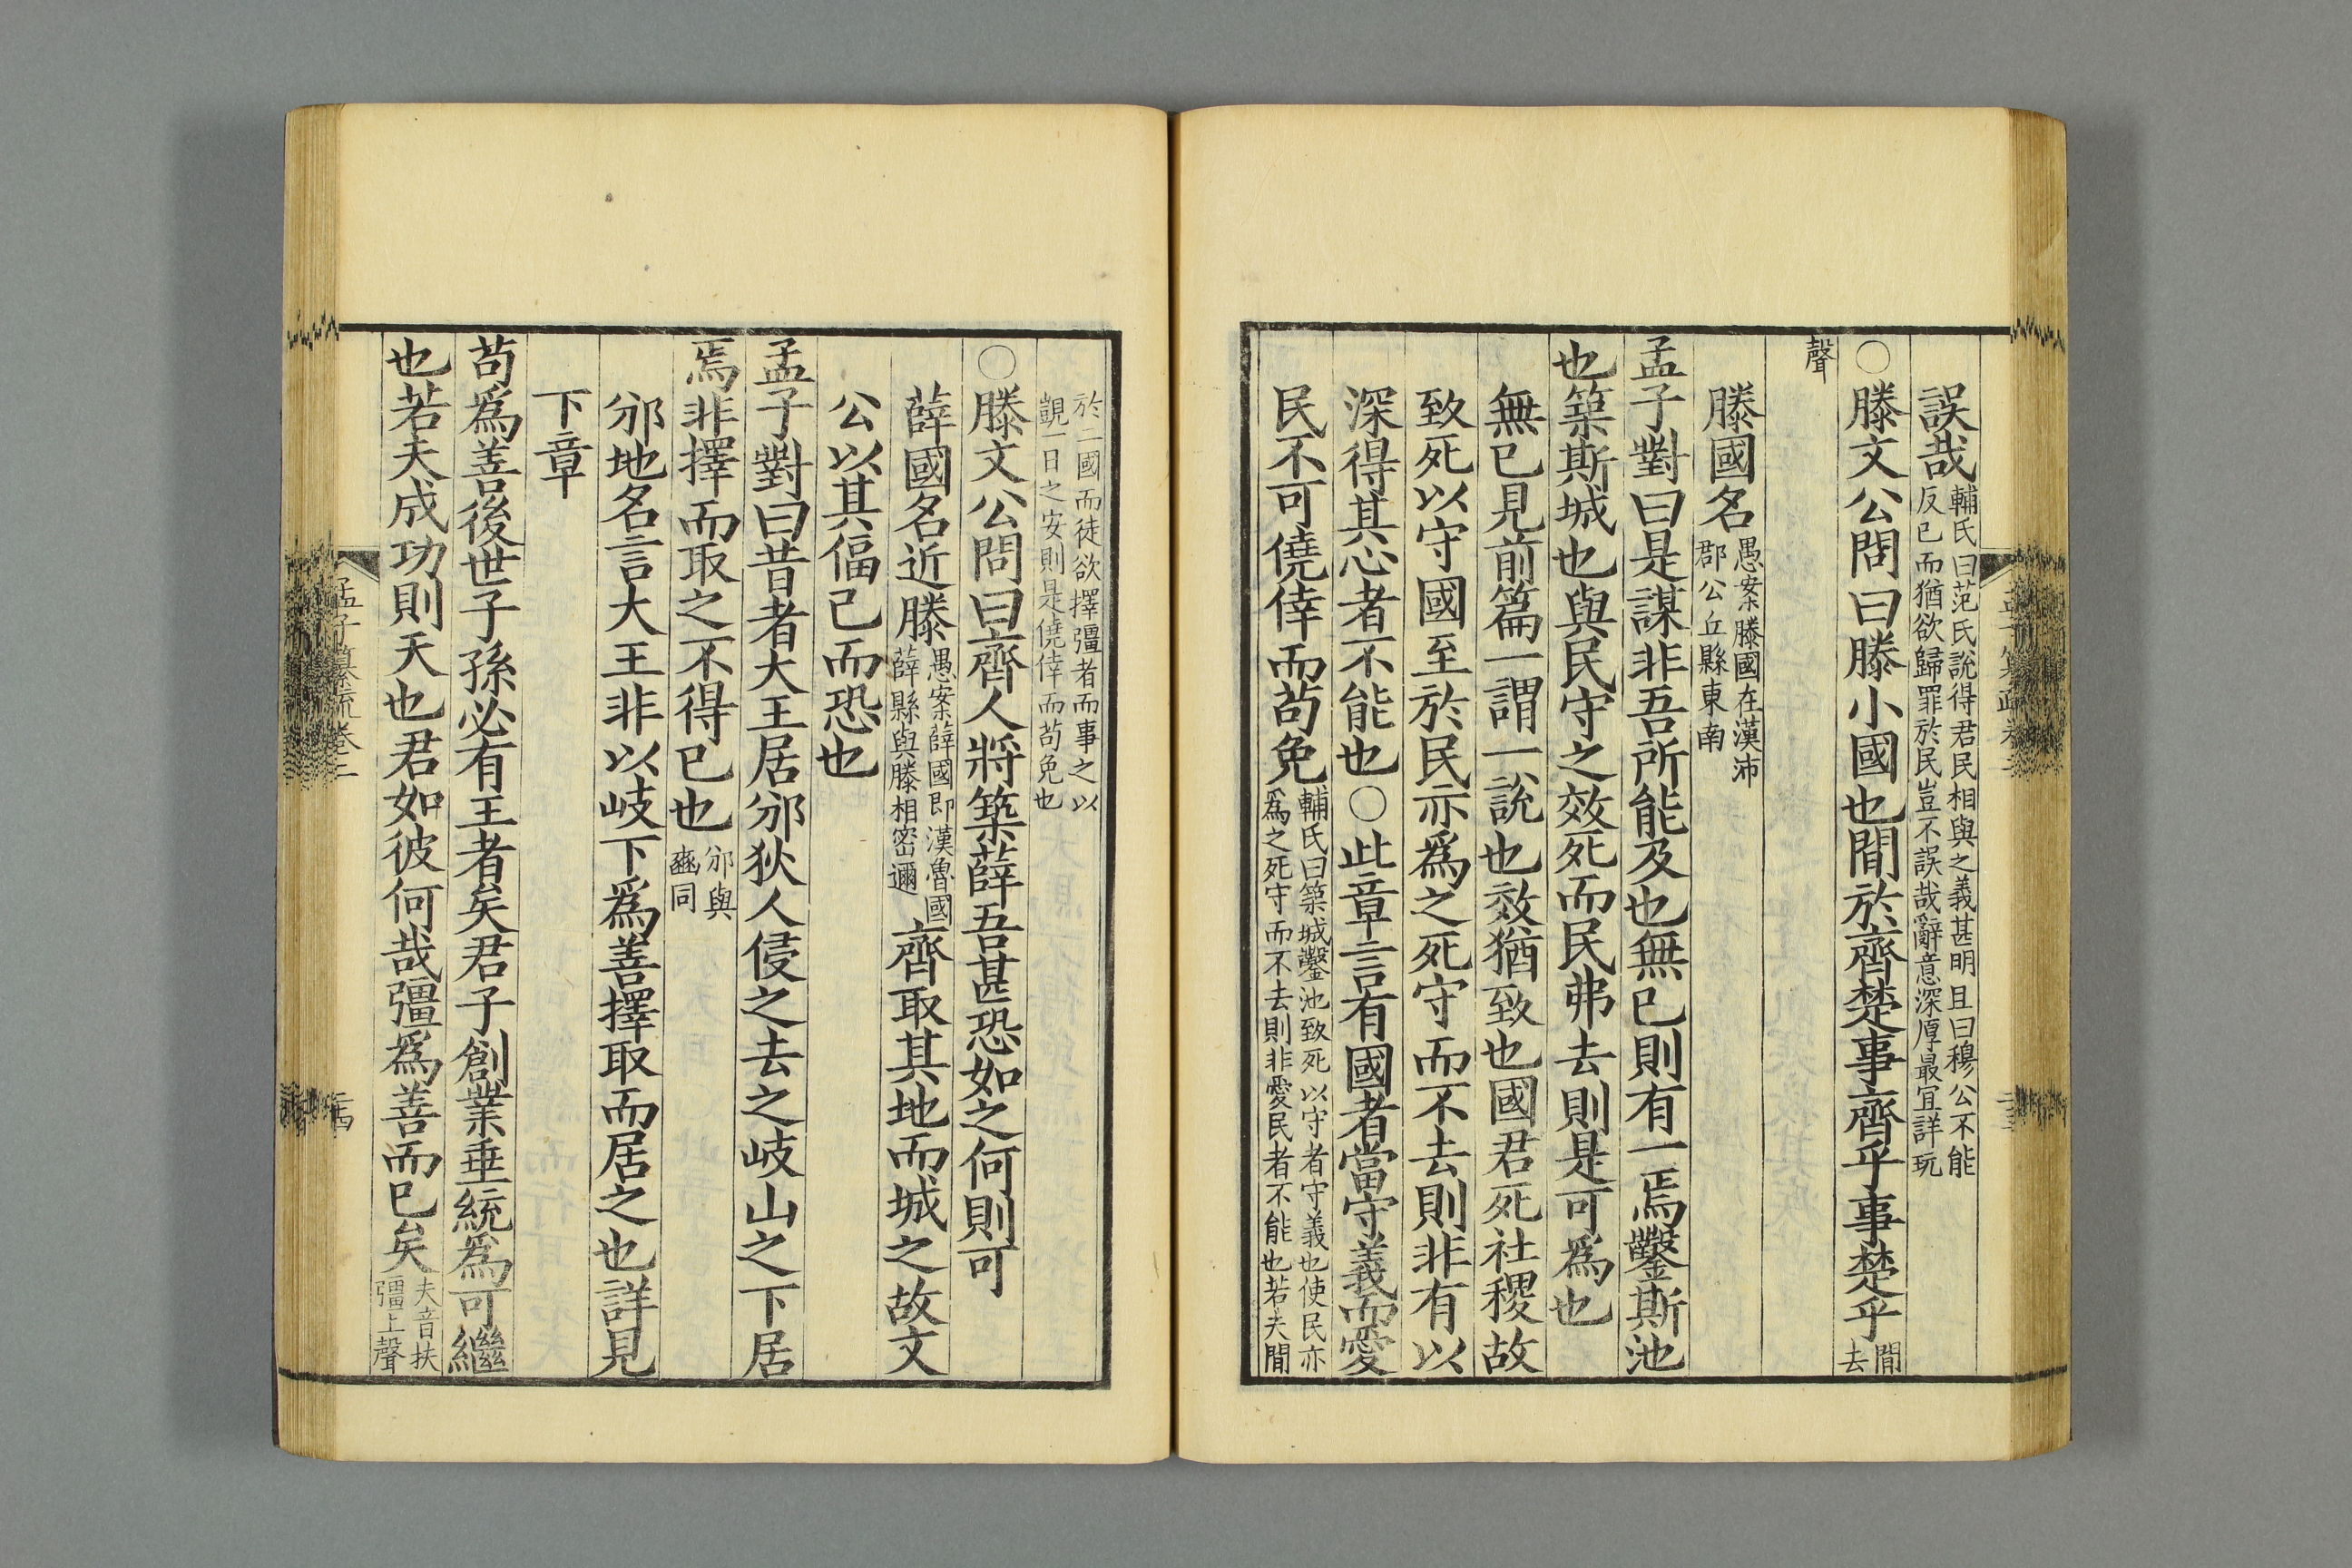 誤哉輔氏曰范氏說得君民相與之義甚明且曰穆公不能
反已而猶欲歸罪於民豈不誤哉辭意深厚最宜詳玩
○滕文公問曰滕小國也間於齊楚事齊乎事楚乎間
去
聲
滕國名愚案滕國在漢沛
郡公丘縣東南
孟子對曰是謀非吾所能及也無已則有一焉鑿斯池
也築斯城也與民守之效死而民弗去則是可為也
無已見前篇一謂一說也效猶致也國君死社稷故
致死以守國至於民亦為之死守而不去則非有以
深得其心者不能也○此章言有國者當守義而愛
民不可僥倖而苟免輔氏曰築城鑿池致死以守者守義也使民亦
為之死守而不去則非愛民者不能也若夫間
於二國而徒欲擇彊者而事之以
覬一日之安則是僥倖而苟免也
○滕文公問曰齊人將築薛吾甚恐如之何則可
薛國名近滕愚案薛國即漢魯國
薛縣與滕相密邇齊取其地而城之故文
公以其偪己而恐也
孟子對曰昔者大王居邠狄人侵之去之岐山之下居
焉非擇而取之不得已也邠與
豳同
邠地名言大王非以岐下為善擇取而居之也詳見
下章
苟為善後世子孫必有王者矣君子創業垂統為可繼
也若夫成功則天也君如彼何哉彊為善而已矣夫音扶
彊上聲
孟子纂疏卷二